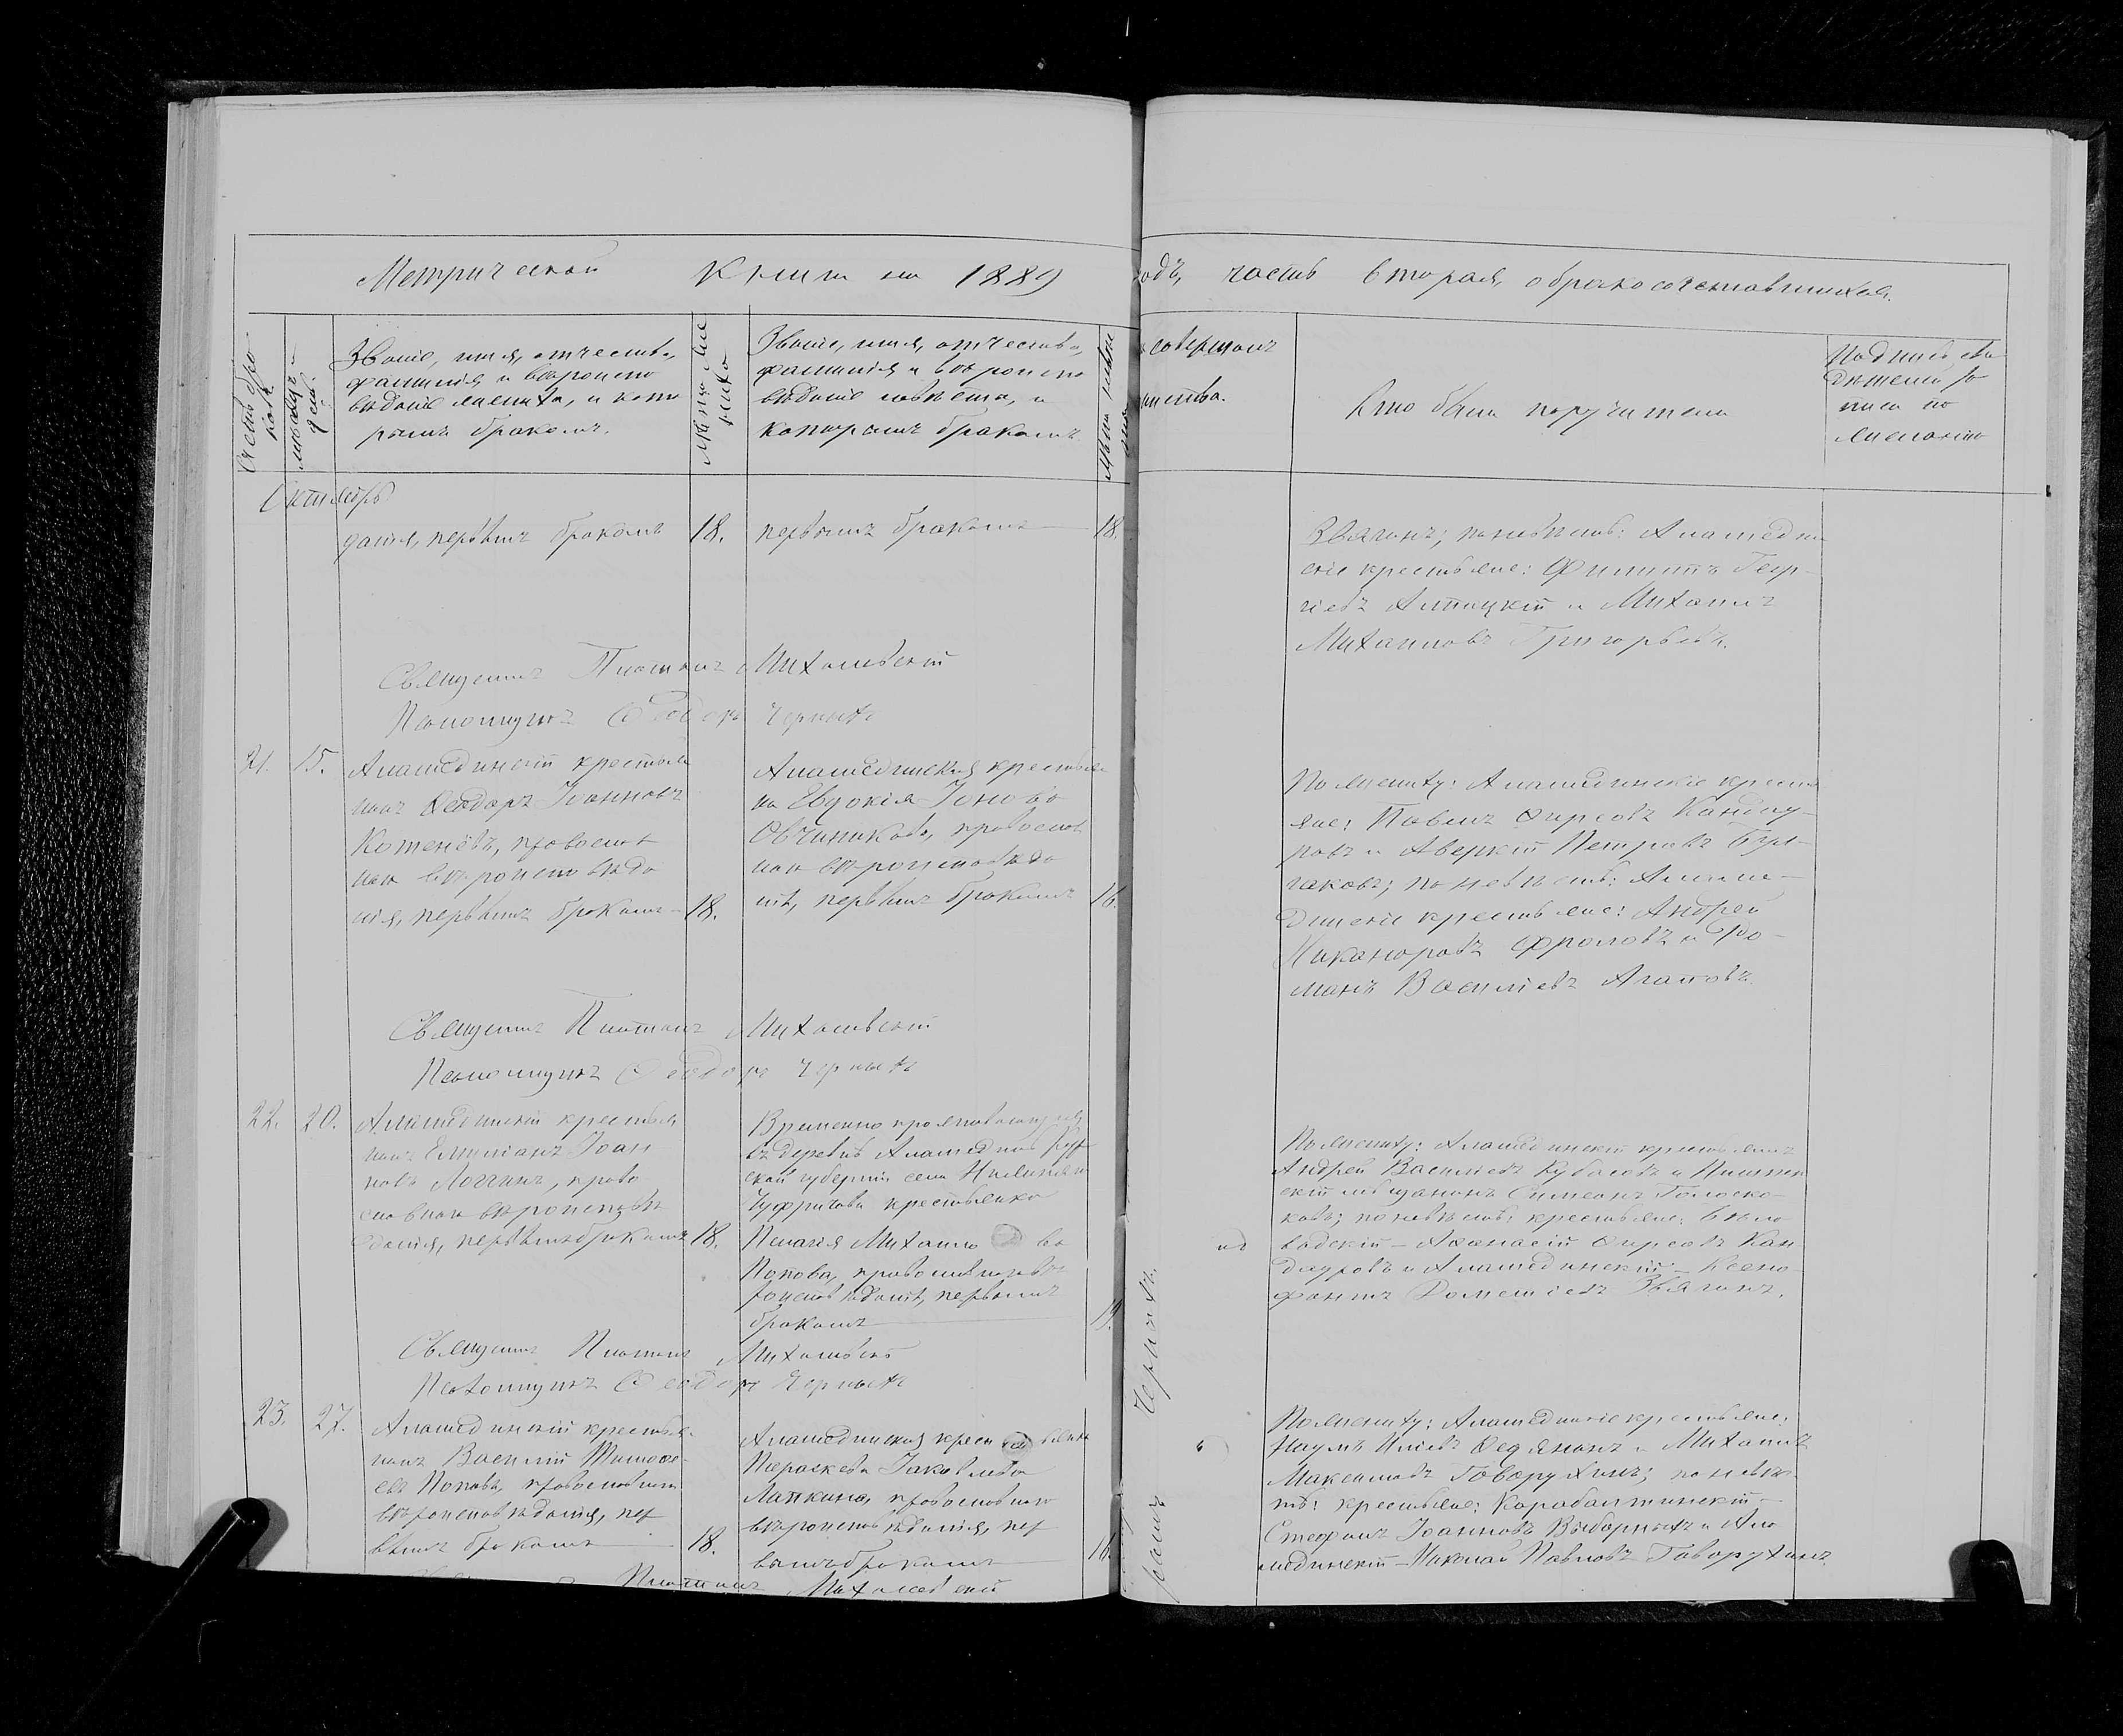 Метрической Книги на 1889
одъ, часть вторая, о бракосочетавшихся.
Счетъ бра-
ковъ.
Званіе, имя, отчество,
фамилія и вѣроиспо
вѣданіе жениха, и кото
рымъ бракомъ.
Званіе, имя, отчество,
фамилія и вѣроиспо
вѣданіе невѣсты, и
которымъ бракомъ.
совершалъ
Кто были поручители
Подпись сви
дѣтелей за
писи по
желанію
Октябрь
данія, первымъ бракомъ 18.
первымъ бракомъ 18.
Звягинъ; по невѣстѣ: Аламедин
скіе крестьяне: Филиппъ Геор-
гіевъ и Михаилъ
Михаиловъ Григорьевъ.
Священникъ Платонъ Михалевскій
Псаломщикъ Ѳеодоръ Черныхъ
21. 15.
Аламединскій крестья
нинъ Ѳеодоръ Іоанновъ
Котенёвъ, православ
наго вѣроисповѣда
нія, первымъ бракомъ 18.
Аламединская крестьян
ка Евдокія Іонова
Овчинникова, православ
наго вѣроисповѣда
нія, первымъ бракомъ 16.
По жениху: Аламединскіе кресть
яне: Павелъ Фирсовъ Кандау-
ровъ и Аверкій Петровъ Бул-
гаковъ; по невѣстѣ: Аламе-
динскіе крестьяне: Андрей
Никаноровъ Фроловъ и Ро-
манъ Василіевъ Агаповъ.
Священникъ Платонъ Михалевскій
Псаломщикъ Ѳеодоръ Черныхъ
22. 20.
Аламединскій крестья
нинъ Емиліанъ Іоан
новъ Логгинъ, право
славнаго вѣроисповѣ
данія, первымъ бракомъ 18.
Временно проживающая
въ деревнѣ Аламединѣ
ской губерніи села
крестьянка
Пелагія Михаило ва
Попова, православнаго вѣ
роисповѣданія, первымъ
бракомъ 19.
По жениху: Аламединскій крестьянинъ
Андрей Василіевъ Кубасовъ и Пишпек
скій мѣщанинъ Симеонъ Голоско-
ковъ; по невѣстѣ: крестьяне: Бѣло
водскій - Аѳанасій Фирсовъ Кан
дауровъ и Аламединскій - Ксено
фонтъ Дометіевъ Звягинъ.
Священникъ Платонъ Михалевскій
Псаломщикъ Ѳеодоръ Черныхъ
23. 27.
Аламединскій крестья-
нинъ Василій Тимоѳе-
евъ Поповъ, православнаго
вѣроисповѣданія, пер
вымъ бракомъ 18.
Аламединская крестьянка
Параскева Іаковлева
Лапкина, православнаго
вѣроисповѣданія, пер
вымъ бракомъ 16.
По жениху: Аламединскіе крестьяне:
Наумъ Иліевъ Ѳедянинъ и Михаилъ
Максимовъ Говорухинъ; по невѣс
тѣ: крестьяне: Карабалтинскій -
Стефанъ Іоанновъ Выборныхъ и Ала
мединскій - Николай Павловъ Говорухинъ.
Платонъ Михалевскій
Черныхъ.